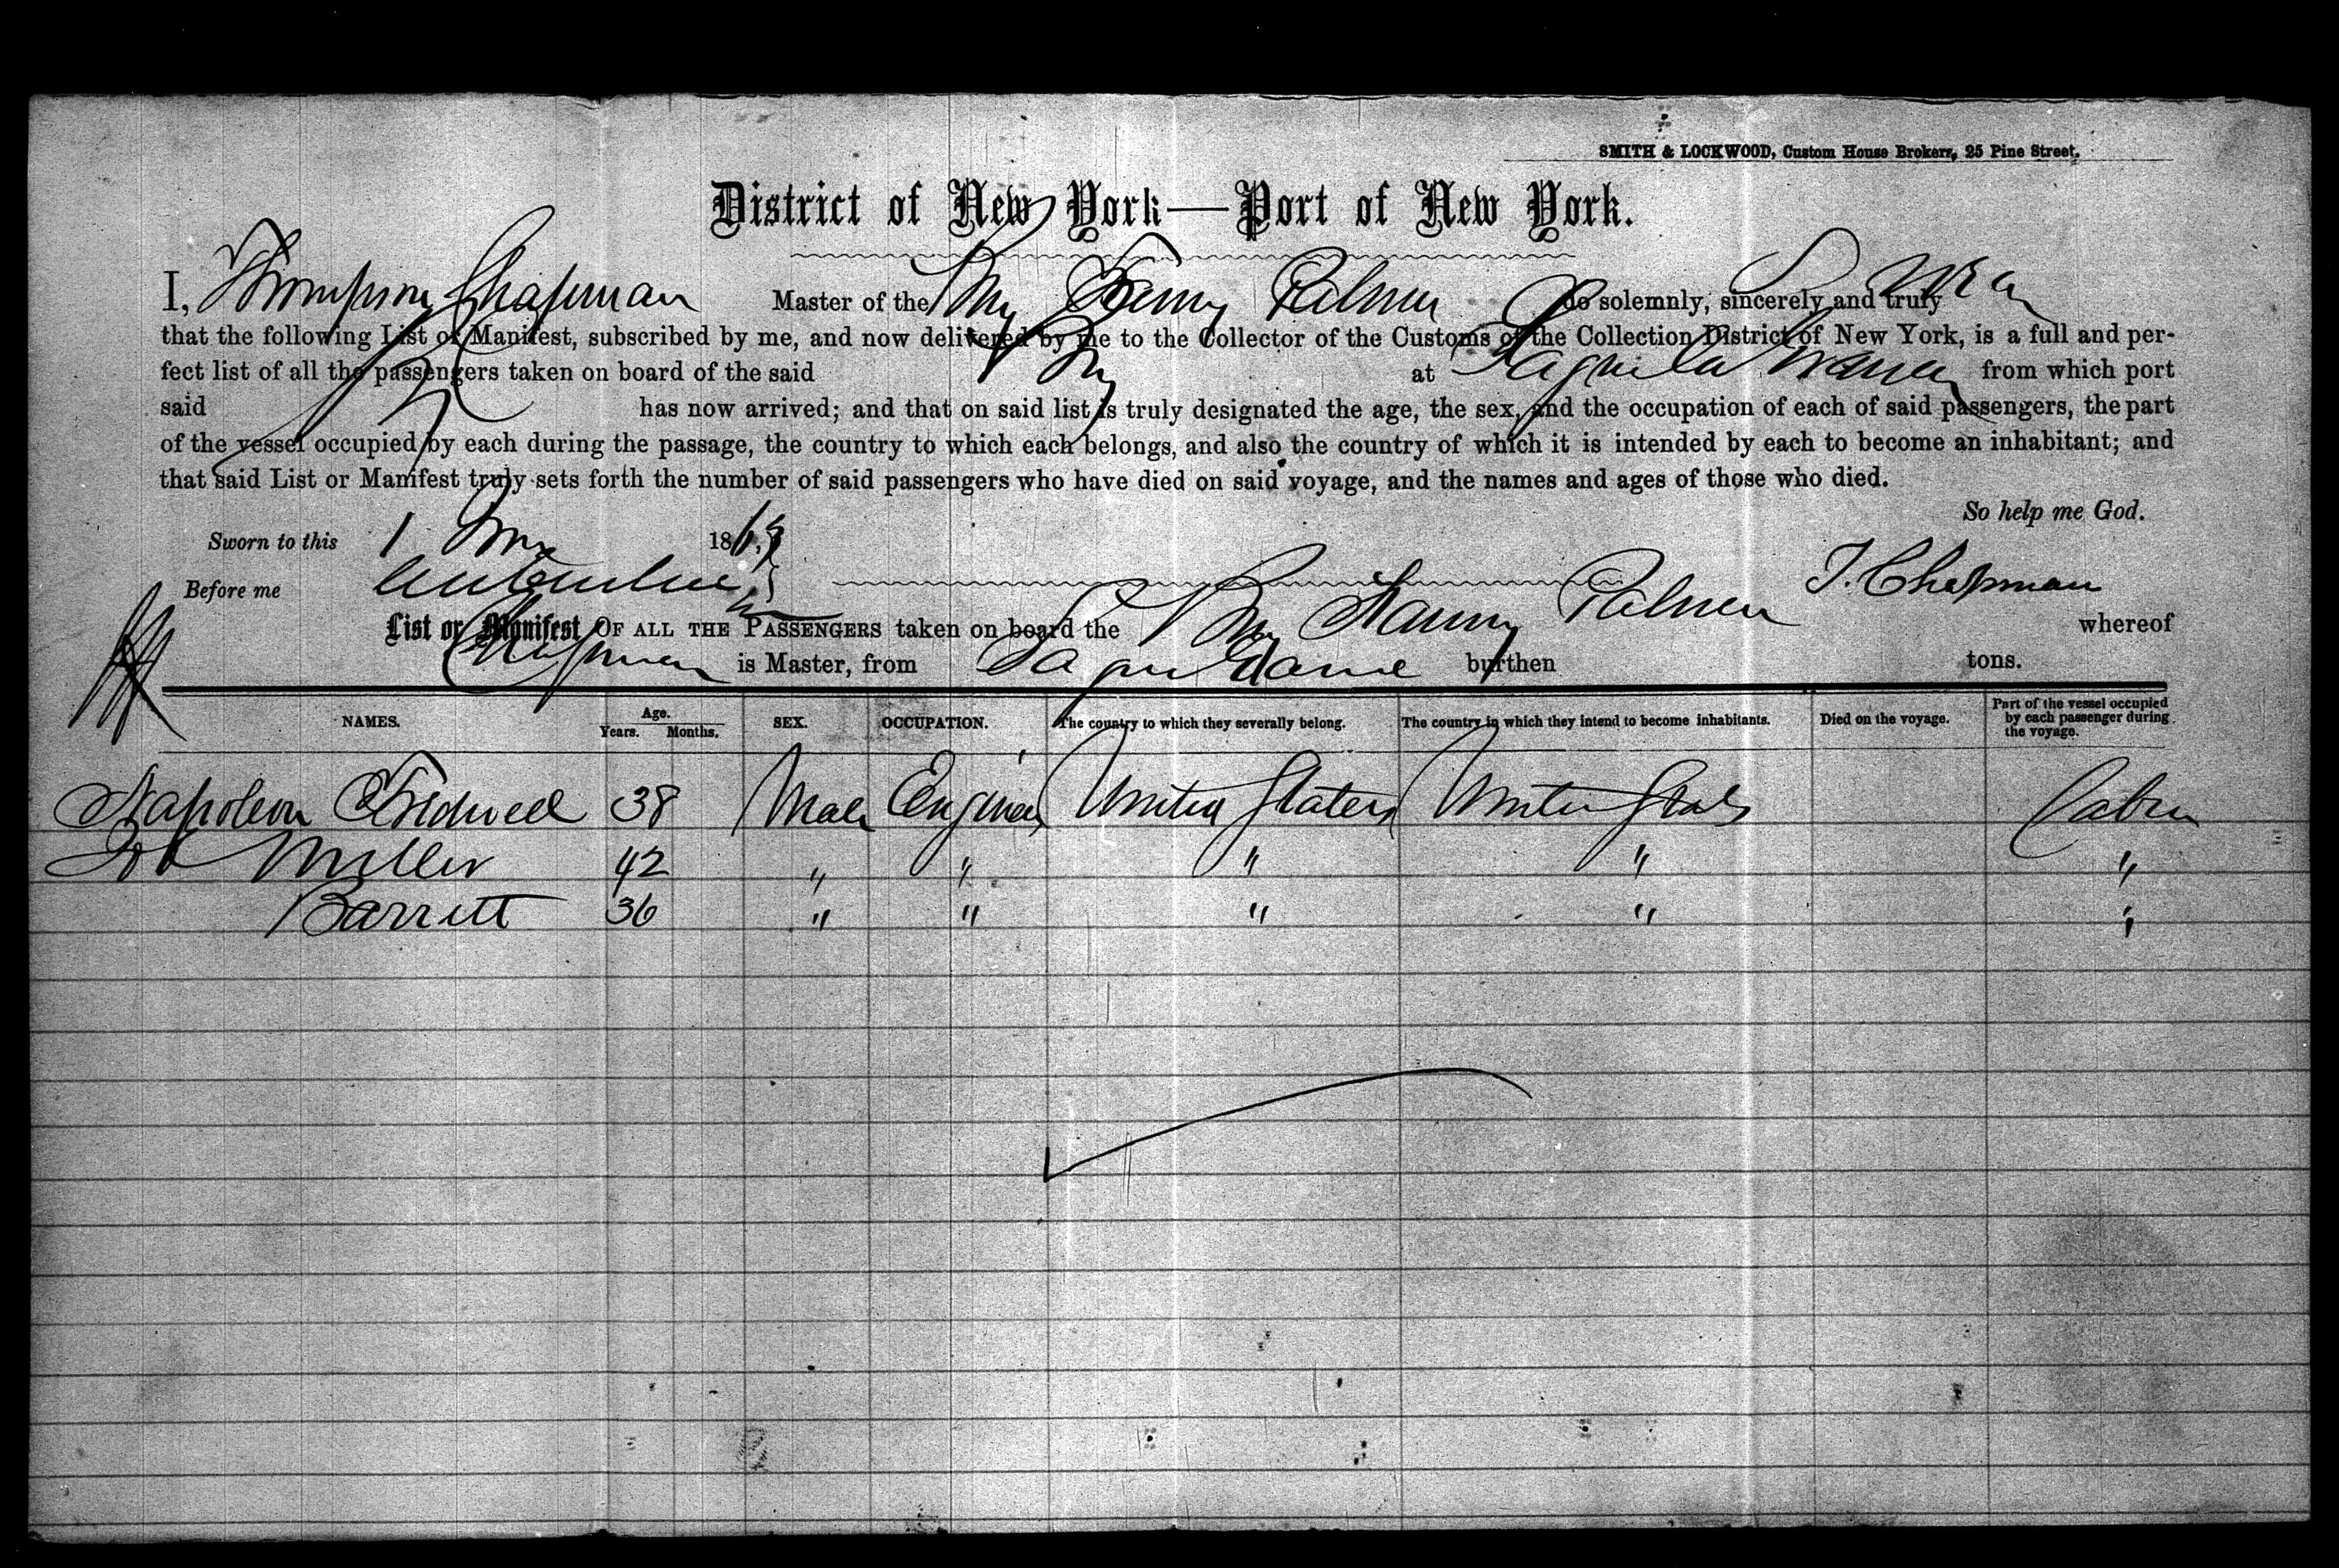 SMITH & LOCKWOOD, Custom House Brokers, 25 Pine Street.
District of New York—Port of New York.
I, Thompson Chapman Master of the Fanny Palmer do solemnly, sincerely and truly
that the following List or Manifest, subscribed by me, and now delivered by me to the Collector of the Customs of the Collection District of New York, is a full and per-
fect list of all the passengers taken on board of the said at Sagua la from which port
said has now arrived; and that on said list is truly designated the age, the sex, and the occupation of each of said passengers, the part
of the vessel occupied by each during the passage, the country to which each belongs, and also the country of which it is intended by each to become an inhabitant; and
that said List or Manifest truly sets forth the number of said passengers who have died on said voyage, and the names and ages of those who died.
So help me God.
Sworn to this 1 186
Before me T. Chapman
List or Manifest OF ALL THE PASSENGERS taken on board the Fanny Palmer whereof
Chapman is Master, from Sagua burthen tons.
NAMES. Age. Years. Months. SEX. OCCUPATION. The country to which they severally belong. The country in which they intend to become inhabitants. Died on the voyage. Part of the vessel occupied by each passenger during the voyage.
Napoleon 38 Male Engineer United States United States Cabin
Miller 42 " " " " "
Barrett 36 " " " " "